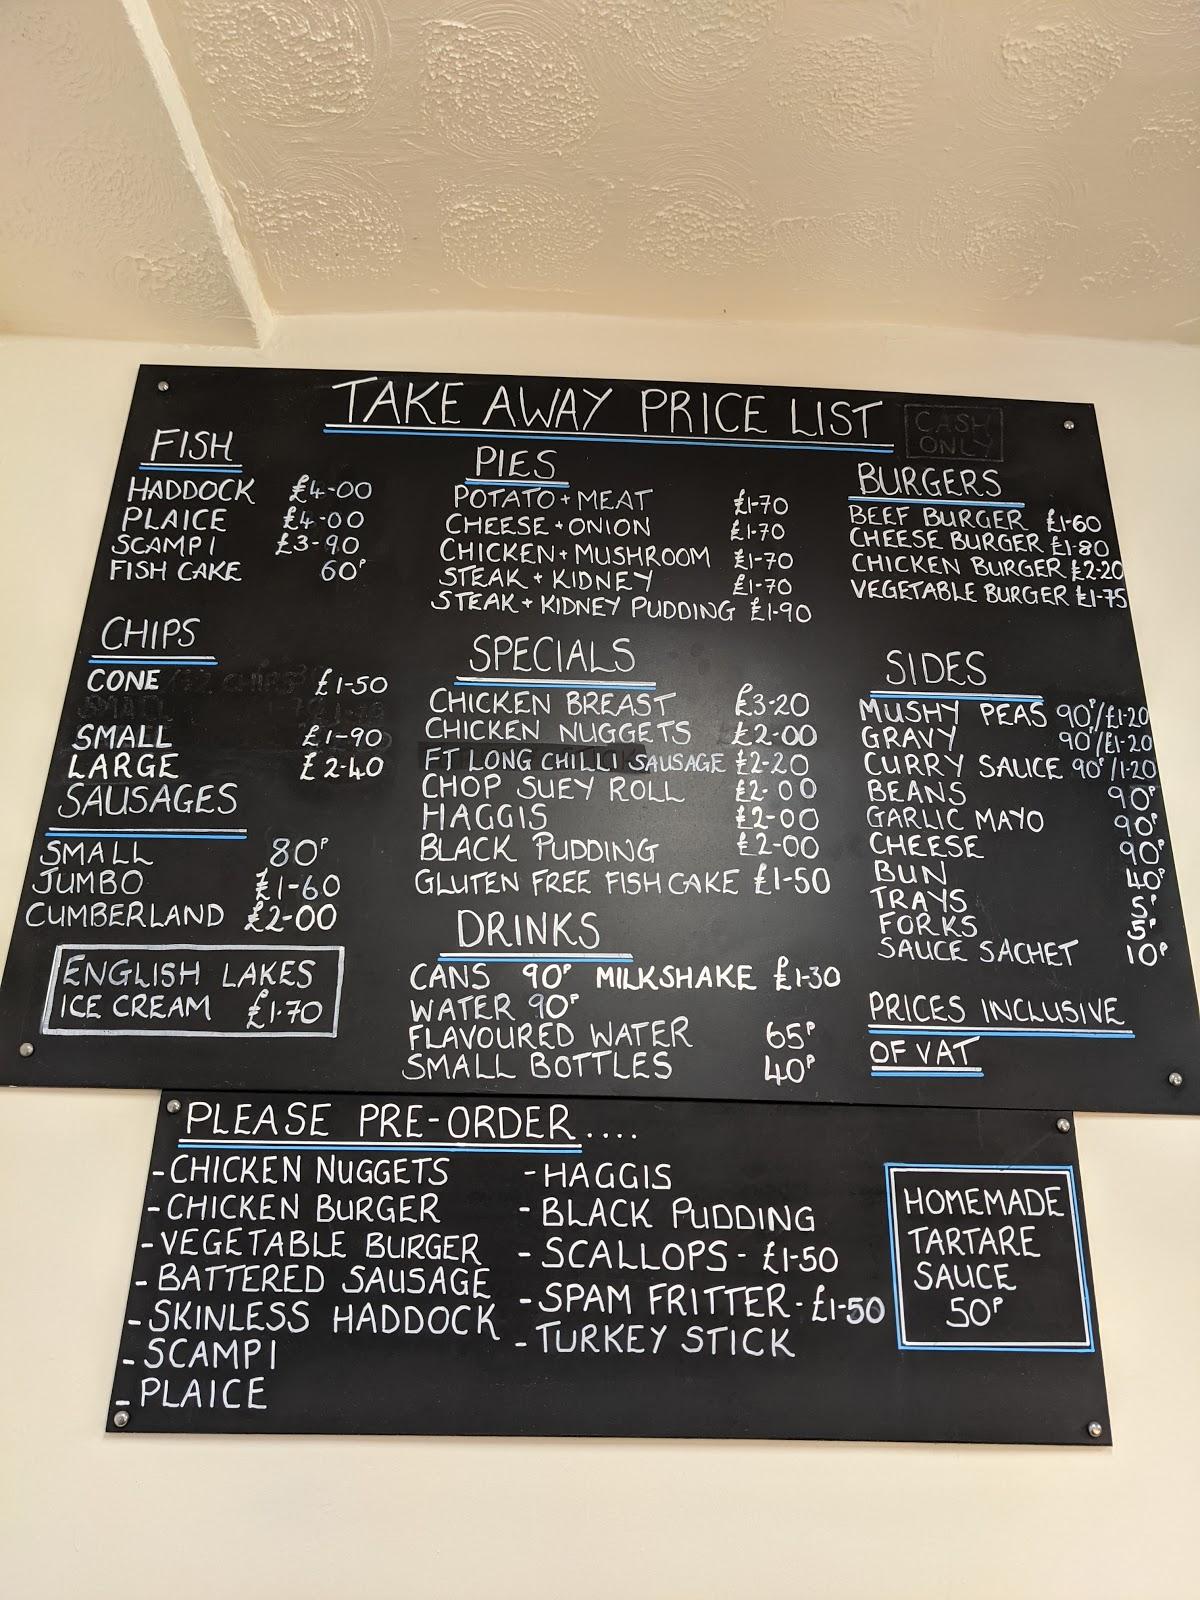 TAKE AWAY PRICE LIST
CASH
ONLY
FISH
HADDOCK £4-00
PLAICE £4-00
SCAMPI £3-90
FISH CAKE 60P
CHIPS
CONE £1-50
SMALL £1-90
LARGE £2-40
SAUSAGES
SMALL 80P
JUMBO £1-60
CUMBERLAND £2-00
ENGLISH LAKES
ICE CREAM £1.70
PIES
POTATO + MEAT £1-70
CHEESE + ONION £1-70
CHICKEN + MUSHROOM £1-70
STEAK + KIDNEY £1-70
STEAK + KIDNEY PUDDING £1-90
SPECIALS
CHICKEN BREAST £3-20
CHICKEN NUGGETS £2-00
FT LONG CHILLI SAUSAGE £2-20
CHOP SUEY ROLL £2-00
HAGGIS £2-00
BLACK PUDDING £2-00
GLUTEN FREE FISHCAKE £1-50
DRINKS
CANS 90P MILKSHAKE £1-30
WATER 90P
FLAVOURED WATER 65P
SMALL BOTTLES 40P
BURGERS
BEEF BURGER £1-60
CHEESE BURGER £1-80
CHICKEN BURGER £2-20
VEGETABLE BURGER £1-75
SIDES
MUSHY PEAS 90P/£1-20
GRAVY 90P/£1-20
CURRY SAUCE 90P/1-20
BEANS 90P
GARLIC MAYO 90P
CHEESE 90P
BUN 40P
TRAYS 5P
FORKS 5P
SAUCE SACHET 10P
PRICES INCLUSIVE
OF VAT
PLEASE PRE-ORDER....
- CHICKEN NUGGETS
- CHICKEN BURGER
- VEGETABLE BURGER
- BATTERED SAUSAGE
- SKINLESS HADDOCK
- SCAMPI
- PLAICE
- HAGGIS
- BLACK PUDDING
- SCALLOPS - £1-50
- SPAM FRITTER - £1-50
- TURKEY STICK
HOMEMADE
TARTARE
SAUCE
50P